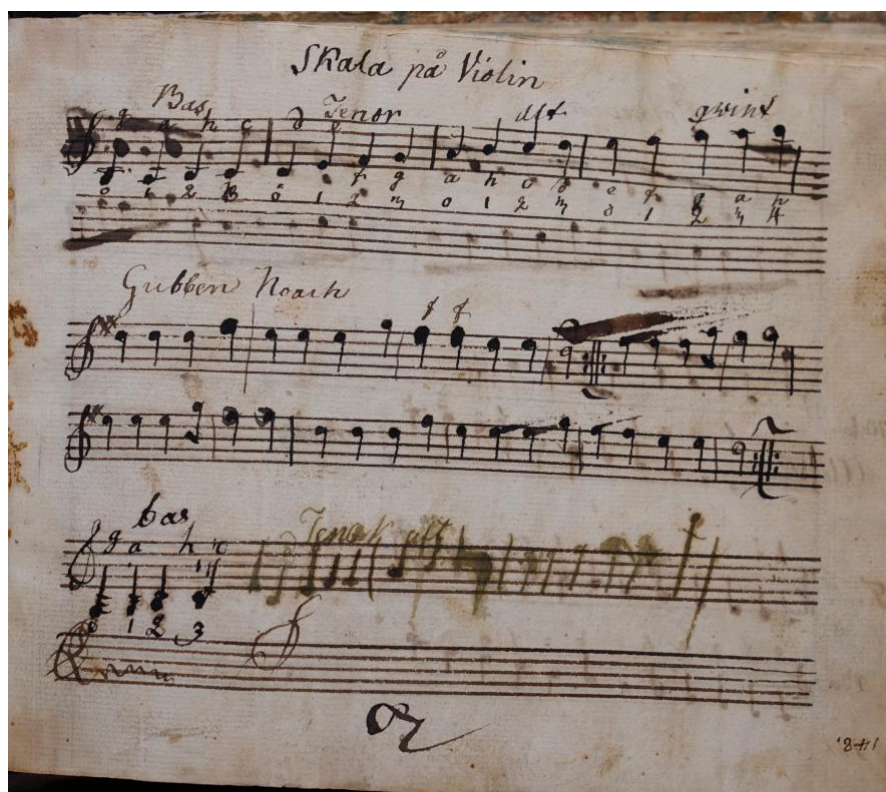 Skala på Violin
Bas Tenor alt qvint
g a h c d e
f g a h c d e f g a h
0 1 2 3 0 1 2 3 0 1 2 3 0 1 2 3 4
Gubben Noach
f f
bas Tenor alt
g a h c
0 1 2 3